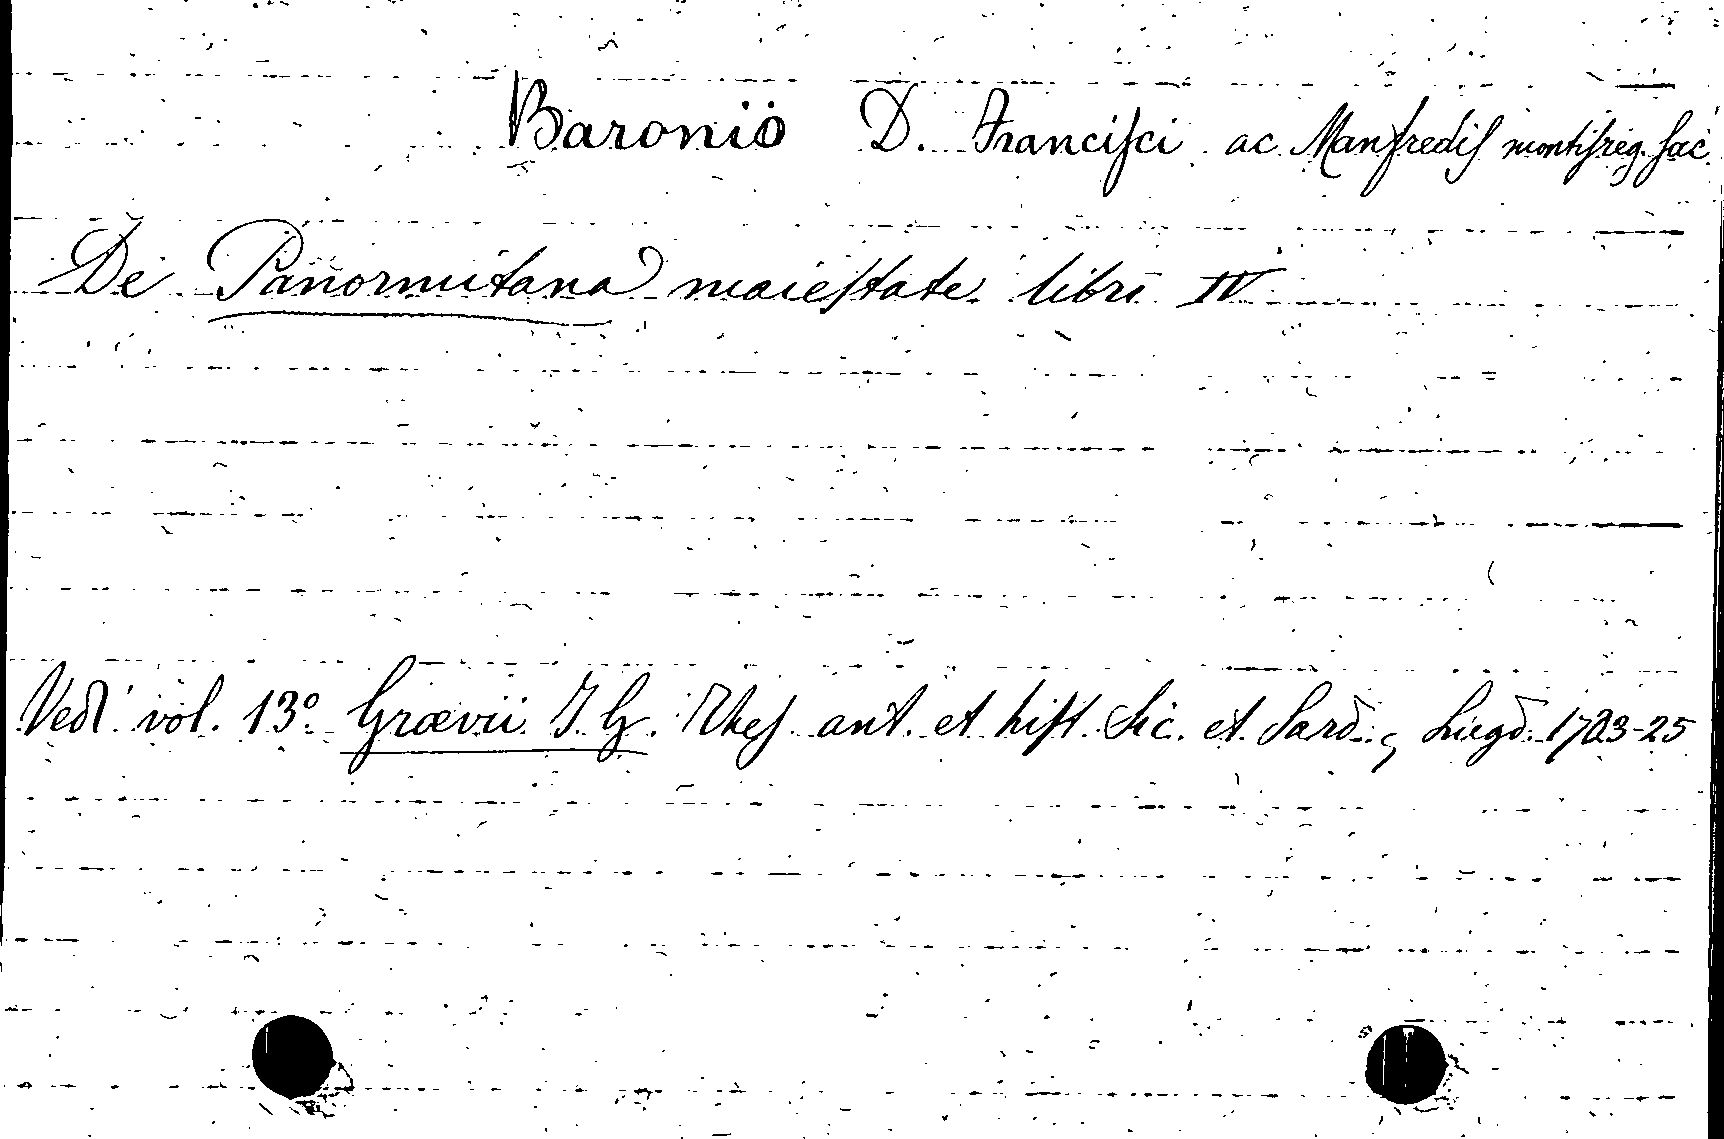 Baronio D. Franciſci ac Manfrediſ montiſreg. ſac.
De Panormitana maieſtate libri IV
Vedi vol. 13º Grævii J. G. Theſ ant. et hiſt. Sic. et Sard., Lugd. 1723-25